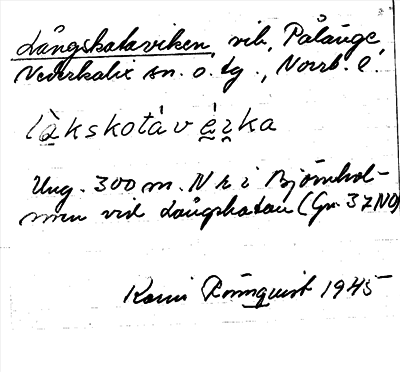 Långskataviken, vik, Pålänge
Nederkalix sn. o. tg., Norrb. l.
làkskotàvè̱ɪka
Ung. 300 m. N k i Björnhol-
men vid Långskatan (Gr. 37 NO)
Karin Rönnquist 1945